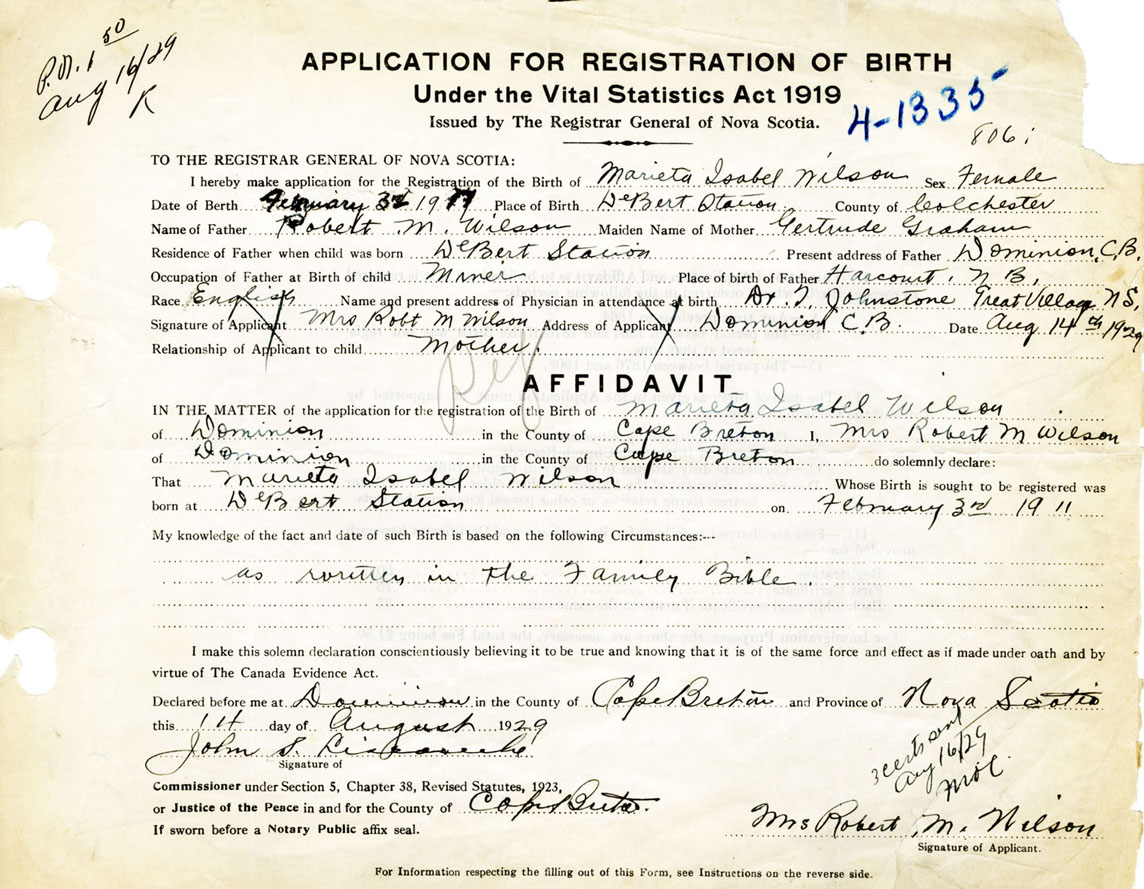 P.N. 1 50
Aug 16/29
K
APPLICATION FOR REGISTRATION OF BIRTH
Under the Vital Statistics Act 1919
4-1335
Issued by The Registrar General of Nova Scotia.
806
TO THE REGISTRAR GENERAL OF NOVA SCOTIA:
I hereby make application for the Registration of the Birth of Marieta Isabel Wilson Sex Female
Date of Berth February 3rd 1911 Place of Birth DeBert Station County of Colchester
Name of Father Robert M. Wilson Maiden Name of Mother Gertrude Graham
Residence of Father when child was born DeBert Station Present address of Father Dominion, C.B.
Occupation of Father at Birth of child Miner Place of birth of Father Harcourt, N.B.
Race English Name and present address of Physician in attendance at birth Dr. T. Johnstone Great Village NS.
Signature of Applicant Mrs Robt M Wilson Address of Applicant Dominion C.B. Date Aug 14th 1929
Relationship of Applicant to child Mother.
AFFIDAVIT
IN THE MATTER of the application for the registration of the Birth of Marieta Isabel Wilson
of Dominion in the County of Cape Breton I, Mrs Robert M Wilson
of Dominion in the County of Cape Breton do solemnly declare:
That Marieta Isabel Wilson Whose Birth is sought to be registered was
born at DeBert Station on February 3rd 1911
My knowledge of the fact and date of such Birth is based on the following Circumstances:---
as written in the Family Bible.
I make this solemn declaration conscientiously believing it to be true and knowing that it is of the same force and effect as if made under oath and by
virtue of The Canada Evidence Act.
Declared before me at Dominion in the County of Cape Breton and Province of Nova Scotia
this 14 day of August 1929
John S.
Signature of
3 certs sent
Aug 16/29
Commissioner under Section 5, Chapter 38, Revised Statutes, 1923,
or Justice of the Peace in and for the County of Cape Breton.
If sworn before a Notary Public affix seal.
Mrs Robert M. Wilson
Signature of Applicant.
For Information respecting the filling out of this Form, see Instructions on the reverse side.